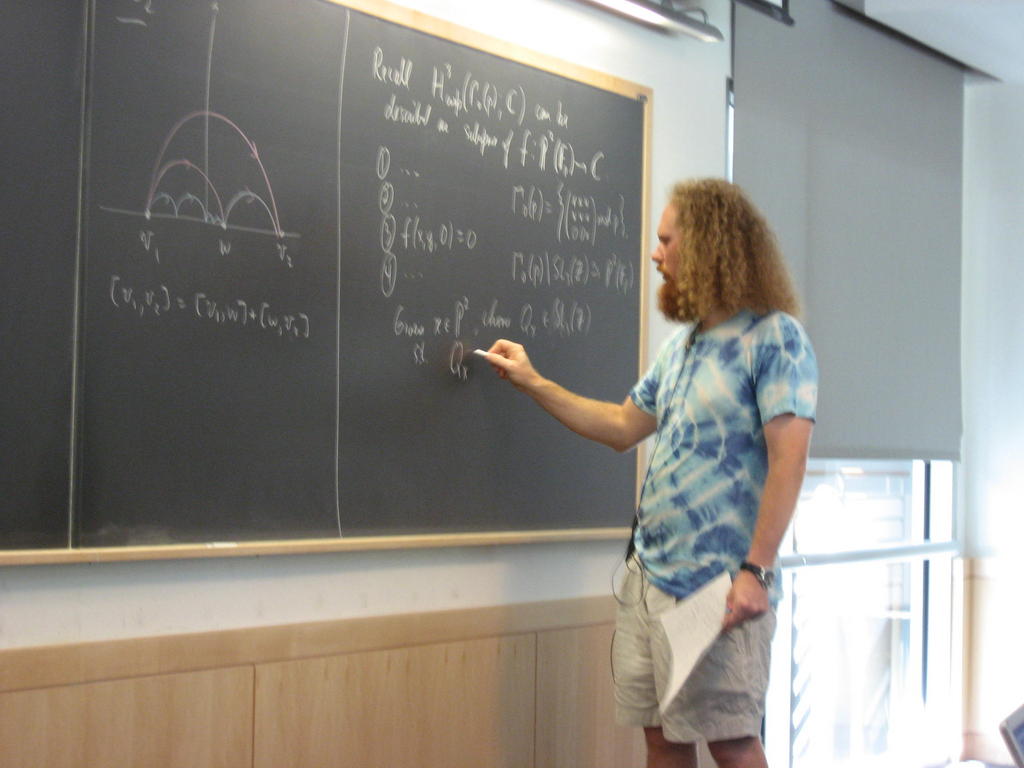 v₁ w v₂
[v₁,v₂] = [v₁,w]+[w,v₂]
Recall H³cusp(Γ₀(p), C) can be
described as subspace of f: P²(F_p) → C
① ...
② ...
③ f(x,y,0)=0
④ ...
Γ₀(p) = {( * * * / * * * / 0 0 * ) mod p}
Γ₀(p)\SL₃(Z) = P²(F_p)
Given x ∈ P², choose Qₓ ∈ SL₃(Z)
st Qₓ